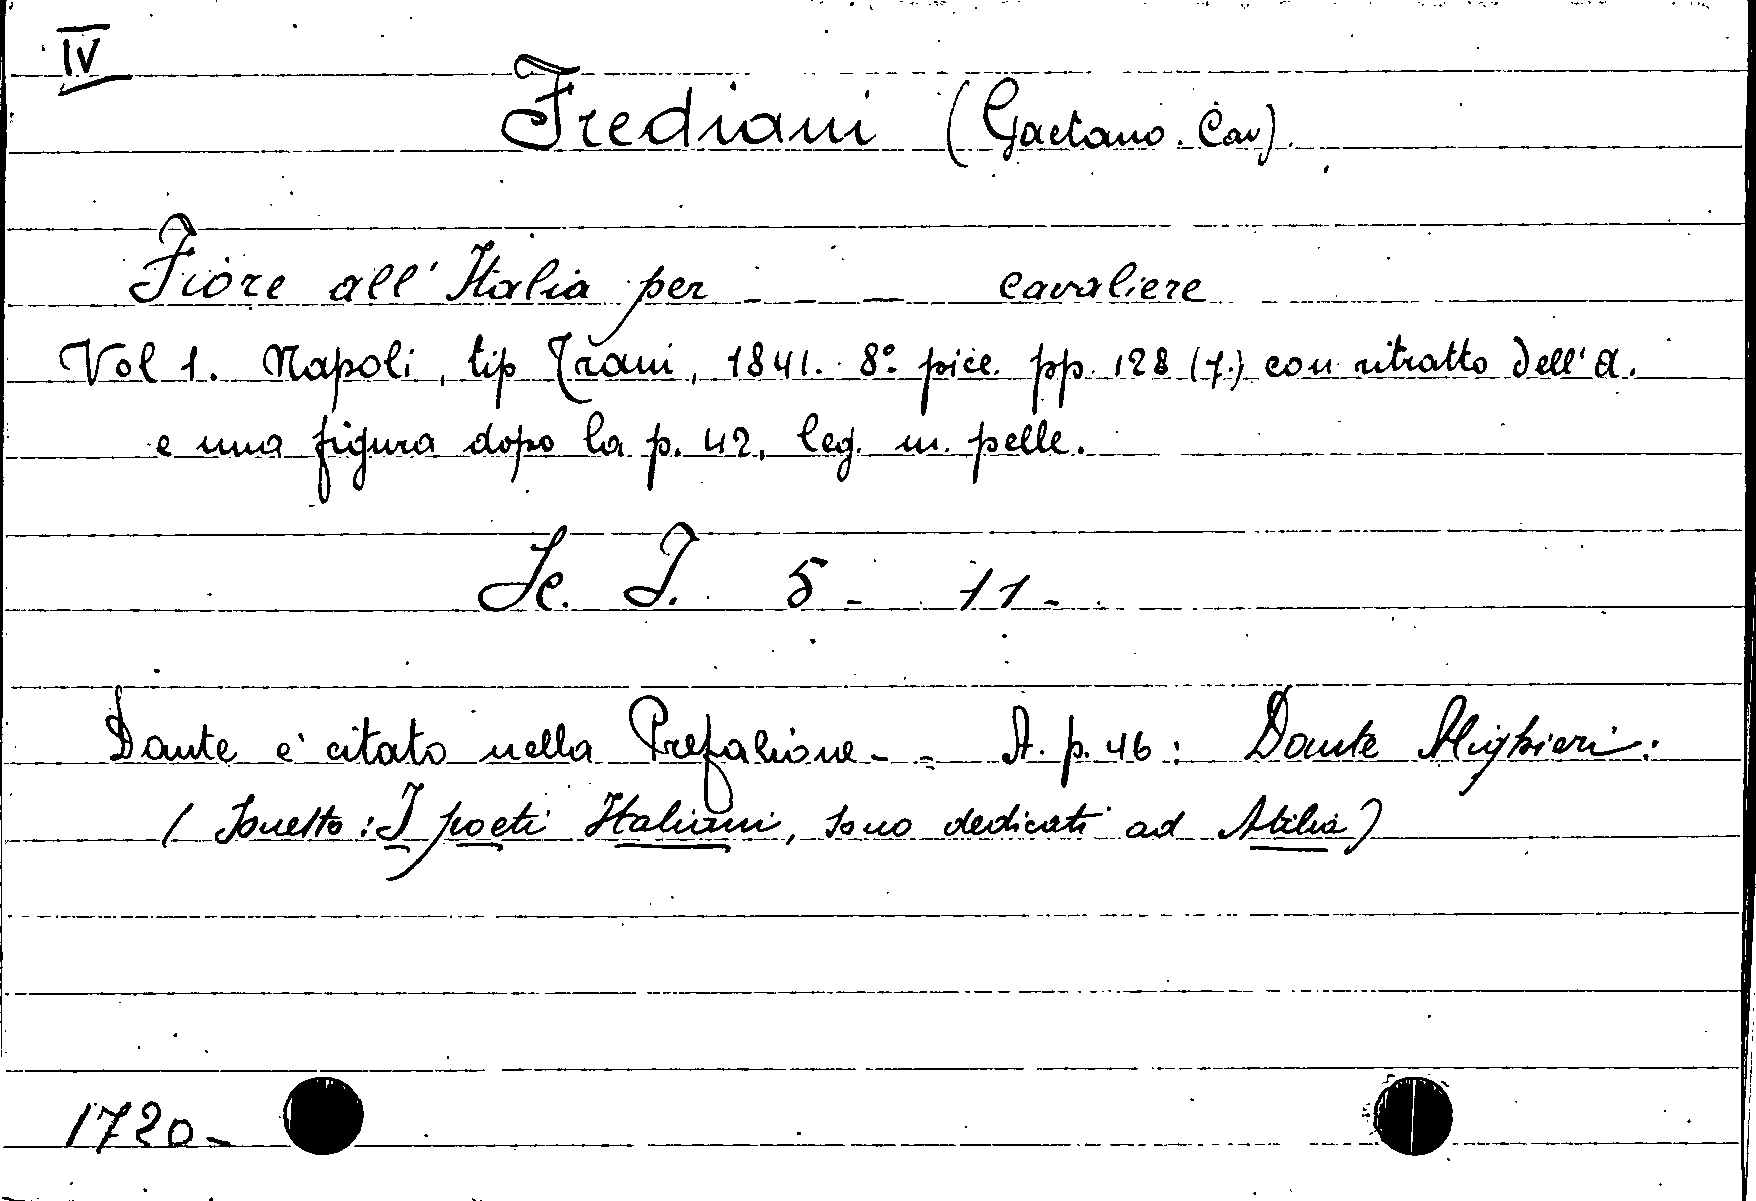 IV
Frediani (Gaetano. Cav).
Fiore all'Italia per - - - cavaliere
Vol 1. Napoli, tip Trani, 1841. 8° picc. pp. 128 (7.) con ritratto dell'A.
e una figura dopo la p. 42, leg. in pelle.
Sc. I. 5 - 11 -
Dante è citato nella Prefazione - - A. p. 46: Dante Alighieri:
(Sonetto: I poeti Italiani, sono dedicati ad Atilia)
1720 -